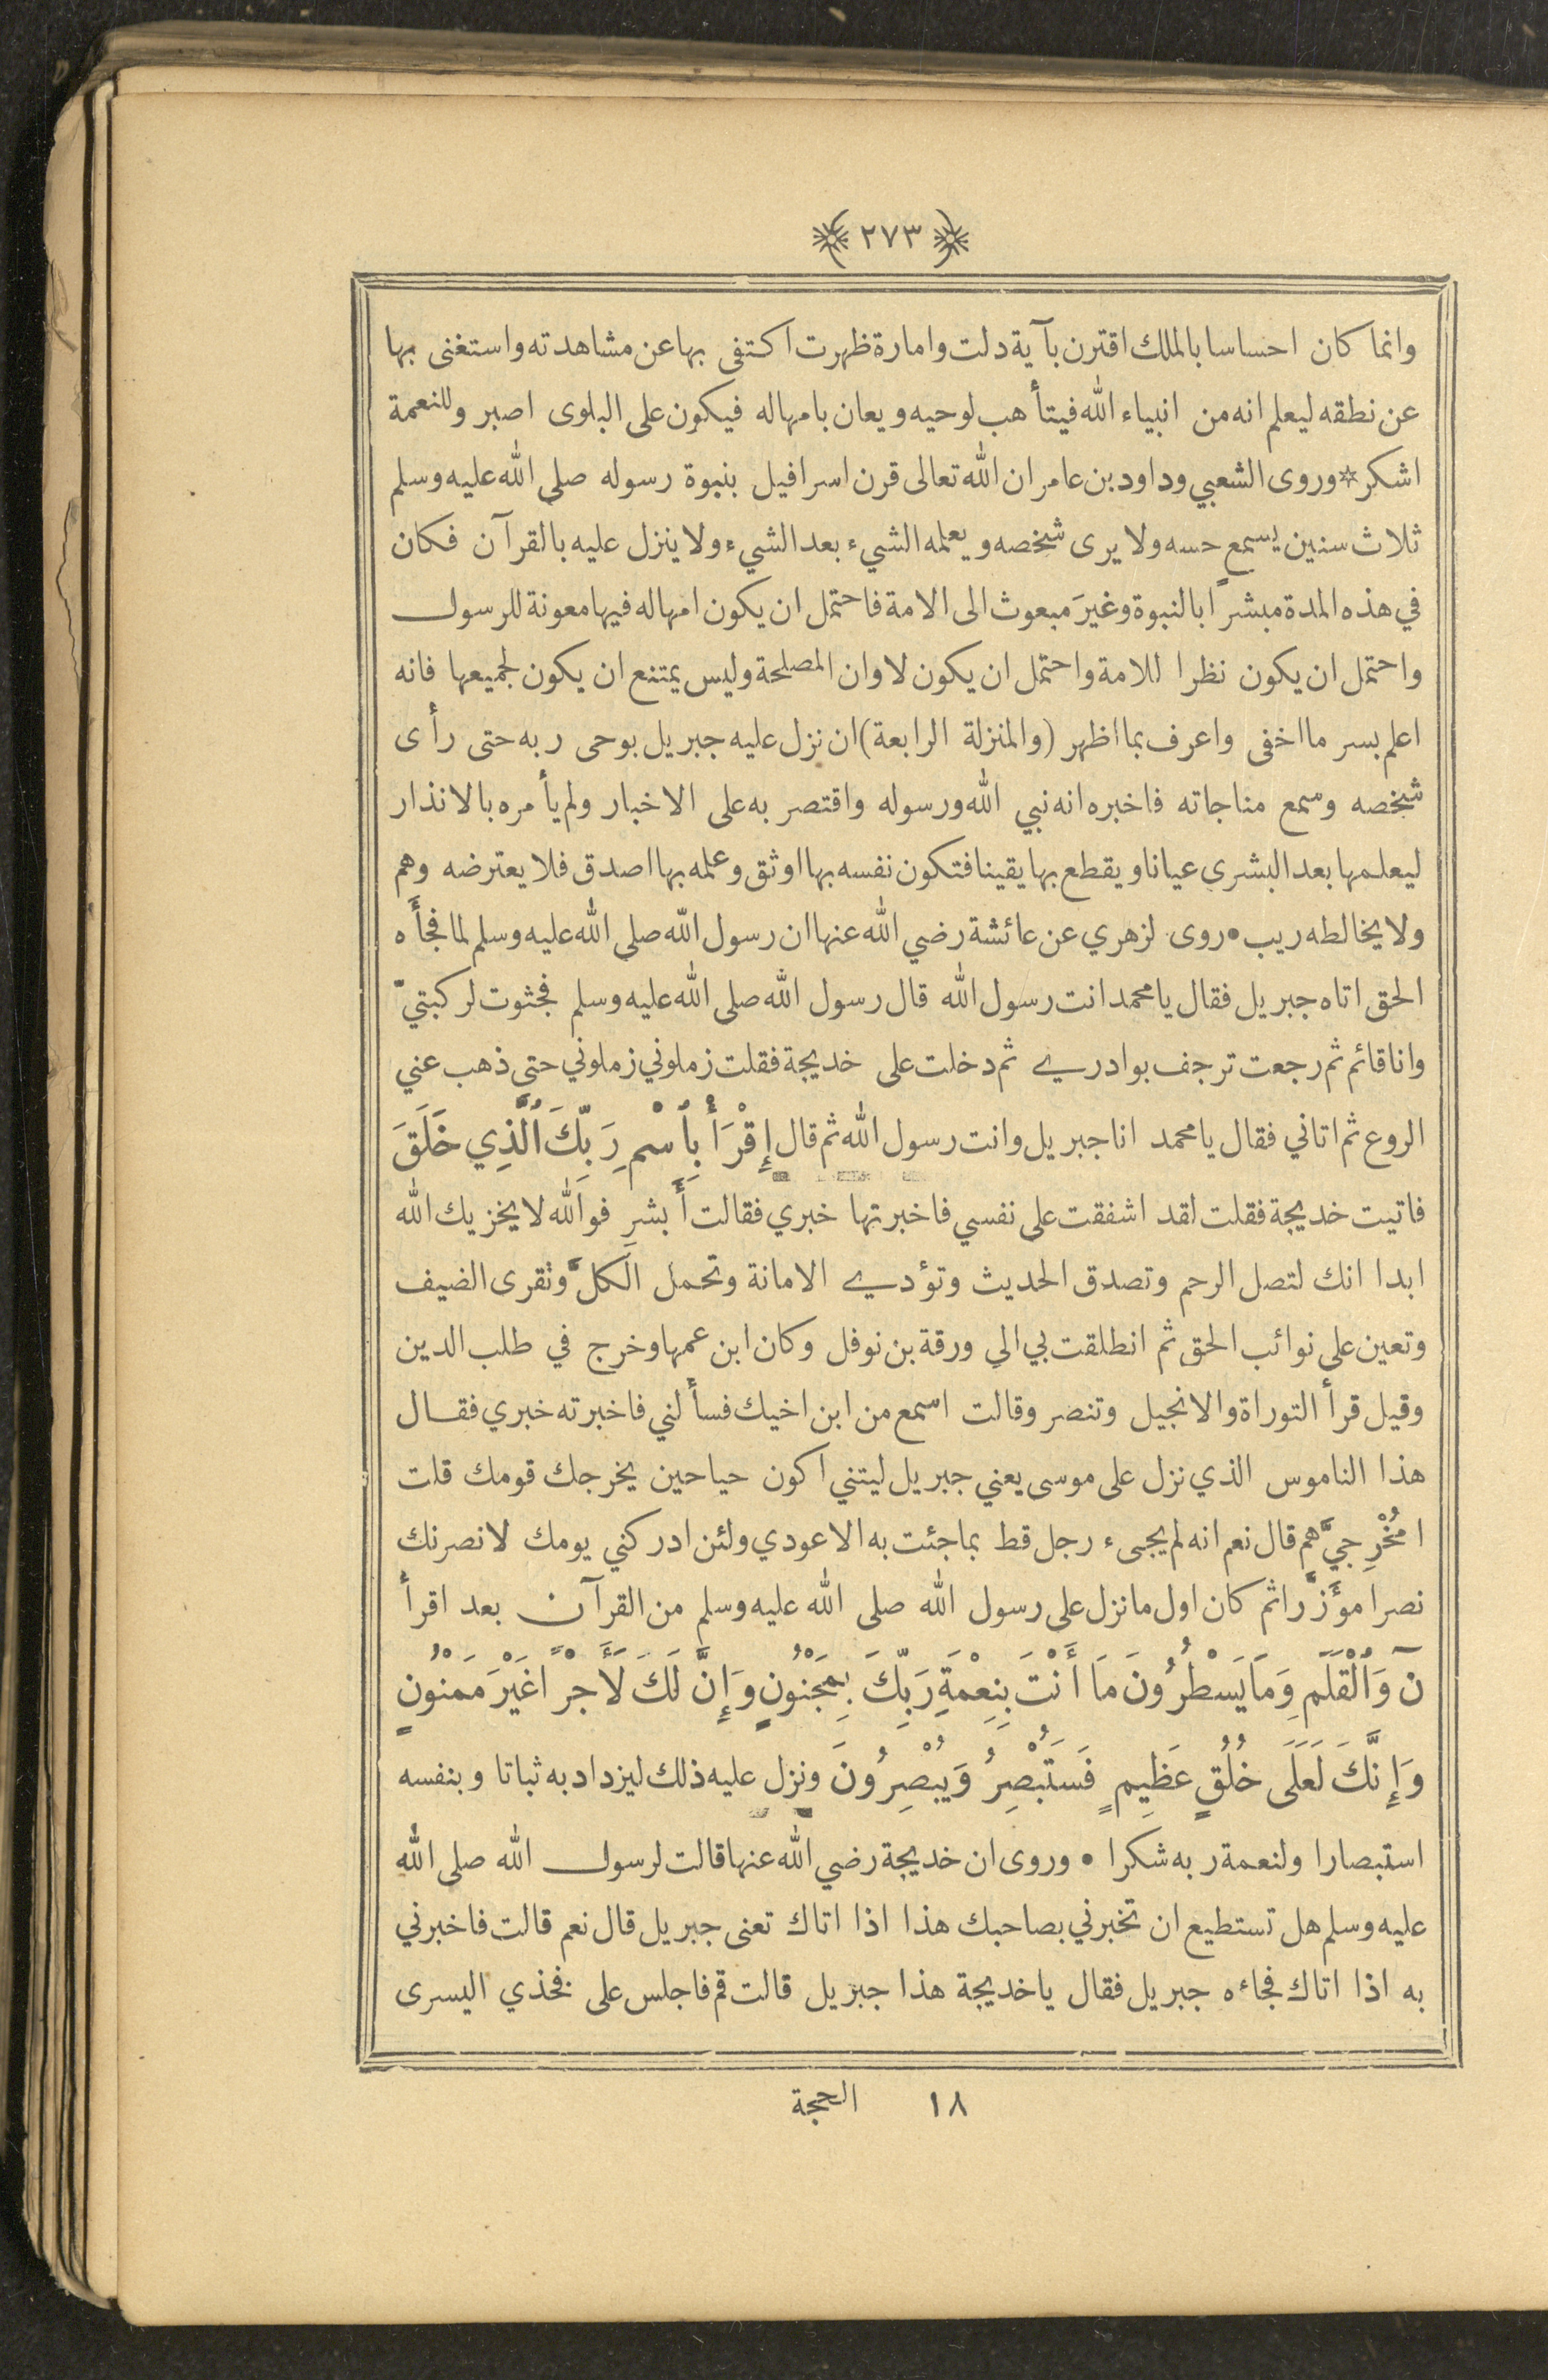 ٢٧٣
وانما كان احساسا بالملك اقترن بآية دلت وامارة ظهرت اكتفى بها عن مشاهدته واستغنى بها
عن نطقه ليعلم انه من انبياء الله فيتأهب لوحيه ويعان بامهاله فيكون على البلوى اصبر وللنعمة
اشكر * وروى الشعبي وداود بن عامر ان الله تعالى قرن اسرافيل بنبوة رسوله صلى الله عليه وسلم
ثلاث سنين يسمع حسه ولا يرى شخصه ويعلمه الشيء بعد الشيء ولا ينزل عليه بالقرآن فكان
في هذه المدة مبشرًا بالنبوة وغيرَ مبعوث الى الامة فاحتمل ان يكون امهاله فيها معونة للرسول
واحتمل ان يكون نظرا للامة واحتمل ان يكون لاوان المصلحة وليس يمتنع ان يكون لجميعها فانه
اعلم بسر ما اخفى واعرف بما اظهر (والمنزلة الرابعة) ان نزل عليه جبريل بوحى ربه حتى رأى
شخصه وسمع مناجاته فاخبره انه نبي الله ورسوله واقتصر به على الاخبار ولم يأمره بالانذار
ليعلمها بعد البشرى عيانا ويقطع بها يقينا فتكون نفسه بها اوثق وعلمه بها اصدق فلا يعترضه وهم
ولا يخالطه ريب • روى لزهري عن عائشة رضي الله عنها ان رسول الله صلى الله عليه وسلم لما فجأَه
الحق اتاه جبريل فقال يا محمد انت رسول الله قال رسول الله صلى الله عليه وسلم فجثوت لركبتيّ
وانا قائم ثم رجعت ترجف بوادري ثم دخلت على خديجة فقلت زملوني زملوني حتى ذهب عني
الروع ثم اتاني فقال يا محمد انا جبريل وانت رسول الله ثم قال إِقْرَأْ بِٱسْمِ رَبِّكَ ٱلَّذِي خَلَقَ
فاتيت خديجة فقلت لقد اشفقت على نفسي فاخبرتها خبري فقالت أَبشرِ فوالله لا يخزيك الله
ابدا انك لتصل الرحم وتصدق الحديث وتؤدي الامانة وتحمل الكَلَّ وتقرى الضيف
وتعين على نوائب الحق ثم انطلقت بي الى ورقة بن نوفل وكان ابن عمها وخرج في طلب الدين
وقيل قرأ التوراة والانجيل وتنصر وقالت اسمع من ابن اخيك فسألني فاخبرته خبري فقال
هذا الناموس الذي نزل على موسى يعني جبريل ليتني اكون حيا حين يخرجك قومك قلت
امُخْرِجيَّ هم قال نعم انه لم يجىء رجل قط بما جئت به الا عودي ولئن ادركني يومك لانصرنك
نصرا مؤَزَّرا ثم كان اول ما نزل على رسول الله صلى الله عليه وسلم من القرآن بعد اقرأ
نٓ وَٱلْقَلَمِ وَمَا يَسْطُرُونَ مَا أَنْتَ بِنِعْمَةِ رَبِّكَ بِمَجْنُونٍ وَإِنَّ لَكَ لَأَجْرًا غَيْرَ مَمْنُونٍ
وَإِنَّكَ لَعَلَى خُلُقٍ عَظِيمٍ فَسَتُبْصِرُ وَيُبْصِرُونَ ونزل عليه ذلك ليزداد به ثباتا وبنفسه
استبصارا ولنعمة ربه شكرا • وروى ان خديجة رضي الله عنها قالت لرسول الله صلى الله
عليه وسلم هل تستطيع ان تخبرني بصاحبك هذا اذا اتاك تعنى جبريل قال نعم قالت فاخبرني
به اذا اتاك فجاءه جبريل فقال يا خديجة هذا جبريل قالت قم فاجلس على فخذي اليسرى
١٨ الحجة